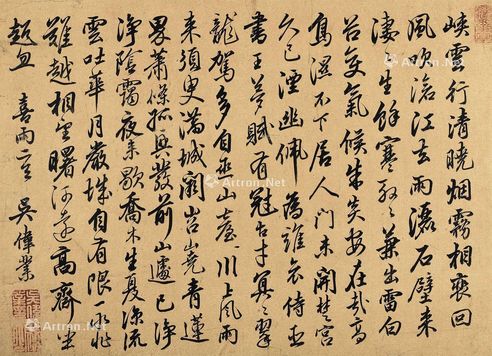 峽雲行清曉烟霧相裵回
風吹滄江去雨灑石壁来
淒淒生餘寒殷殷兼出雷白
谷變氣候朱炎安在哉高
鳥濕不下居人門未開楚宮
久已湮幽佩為誰哀侍臣
書王夢賦有冠古才冥冥翠
龍駕多自巫山臺川上風雨
来須臾滿城闕岧嶢青蓮
界蕭條孤興發前山遽已淨
陰靄夜来歇喬木生夏涼流
雲吐華月嚴城自有限一水非
難越相望曙河遠高齋坐
超忽 喜雨二章 吳偉業
Artron.Net